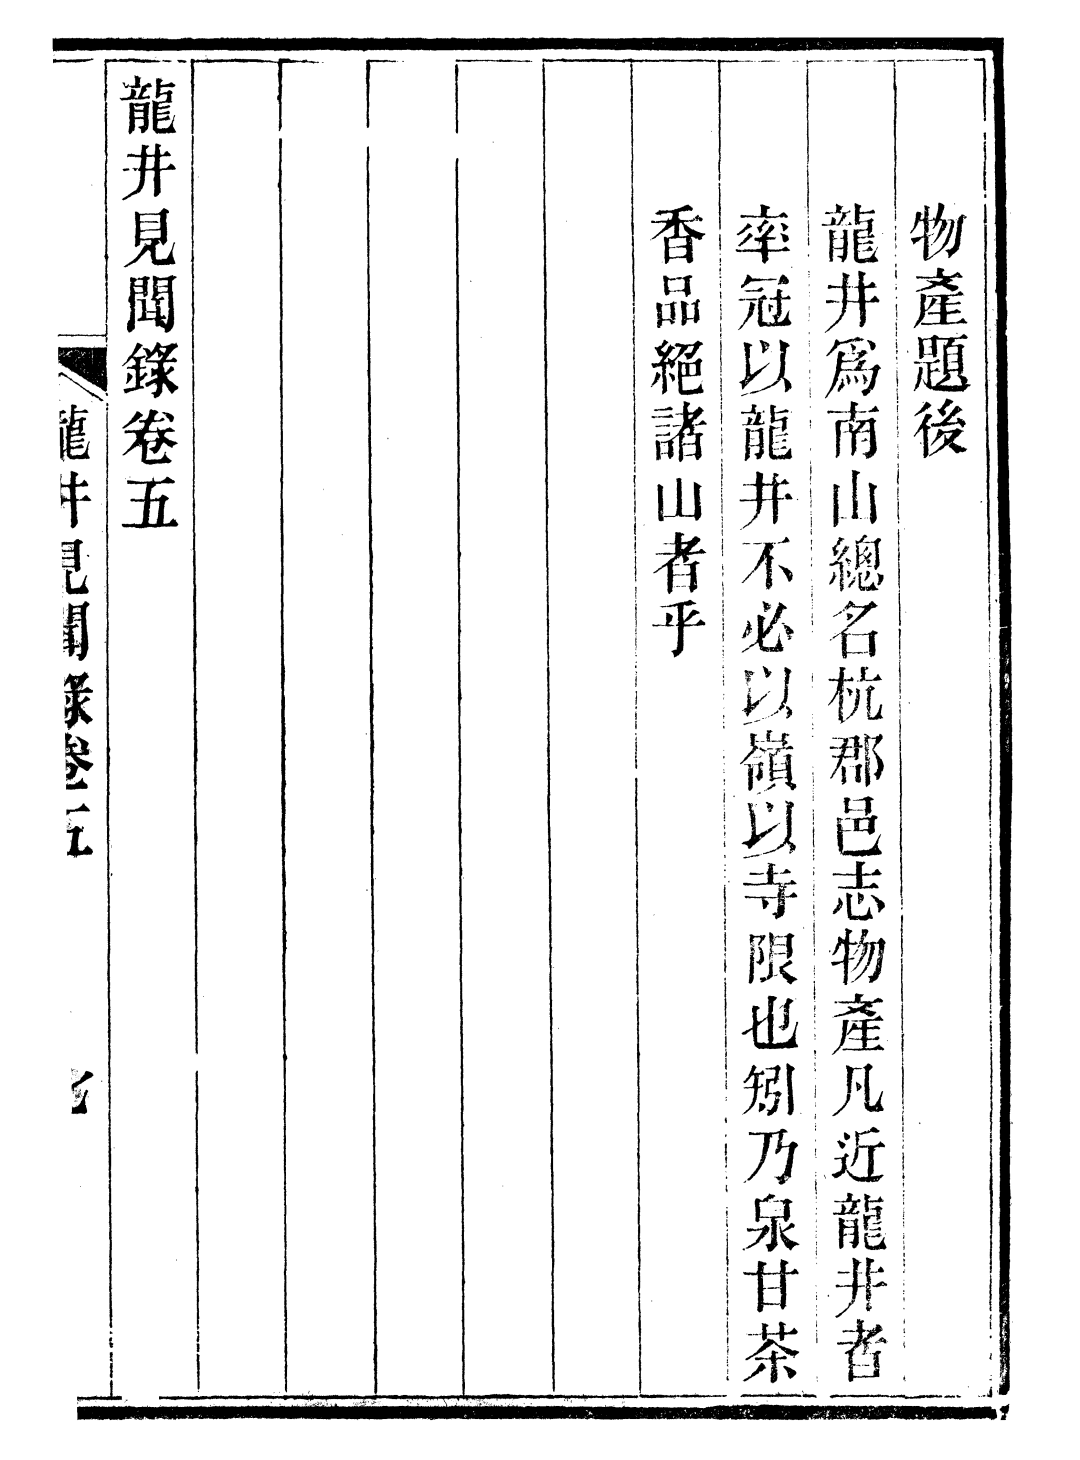 物產題後
龍井爲南山總名杭郡邑志物產凡近龍井者
率冠以龍井不必以嶺以寺限也矧乃泉甘茶
香品絕諸山者乎
龍井見聞錄卷五
龍井見聞錄卷五